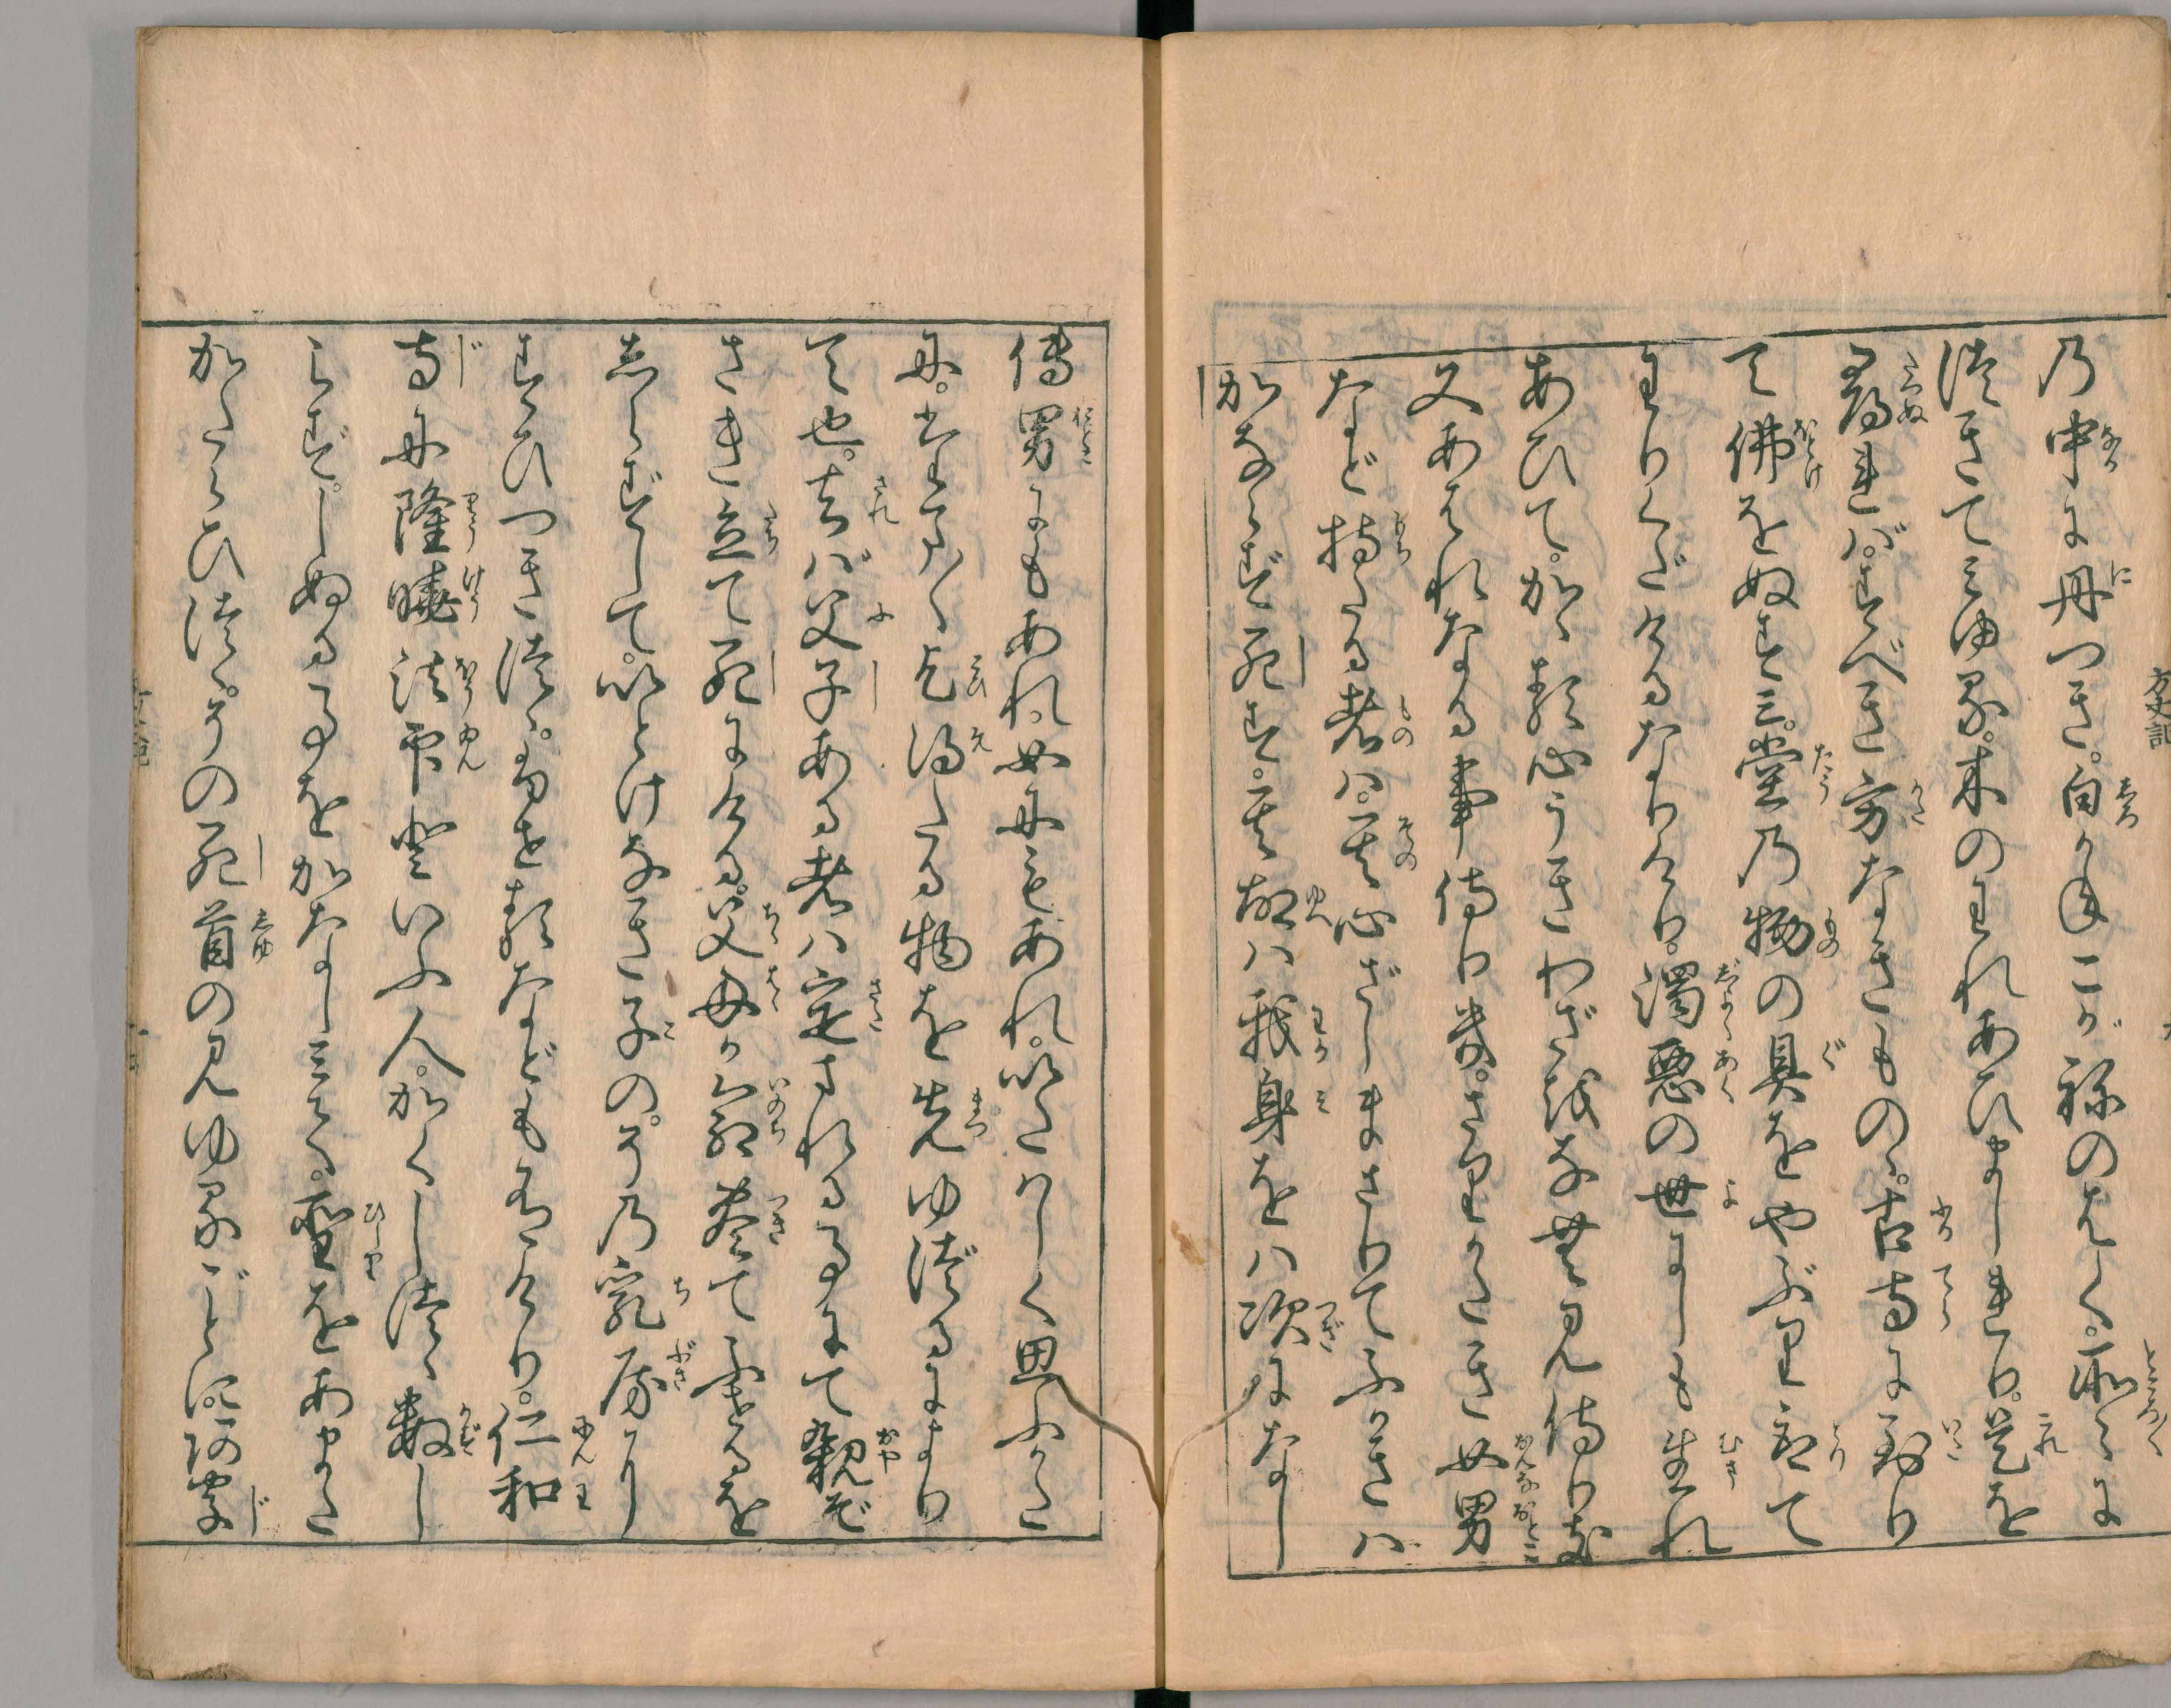 乃中に丹つき。白かねこがねのはく。所々に
つきてみゆる。木のわれあひましれり。是を
尋れば。すべき方なきものゝ。古寺に到り
て佛をぬすみ。堂乃物の具をやぶり取て
わりくだけるなりけり。濁悪の世にしも生れ
あひて。かゝる心うきわざを なん見侍りき
又あはれなる事侍りき。さりがたき女男
など持たる者は。其心ざしまさりてふかきは
かならず死す。其故は我身をば次になし
傳 男にもあれ女にもあれ。いたはしく思ふかた
に。たま〳〵乞得たる物を先ゆづるにより
て也。されば父子ある者は定まれる事にて親ぞ
さき立て死にける。父母が命尽てふせるを
しらずして。いとけなき子の。その乳房に
すひつきつゝ。ふせるなども有けり。仁和
寺に隆暁法印といふ人。かくしつゝ数し
らずしぬる事をかなしみて。聖をあまた
かたらひつゝ。その死首の見ゆるごとに。阿字
方丈記